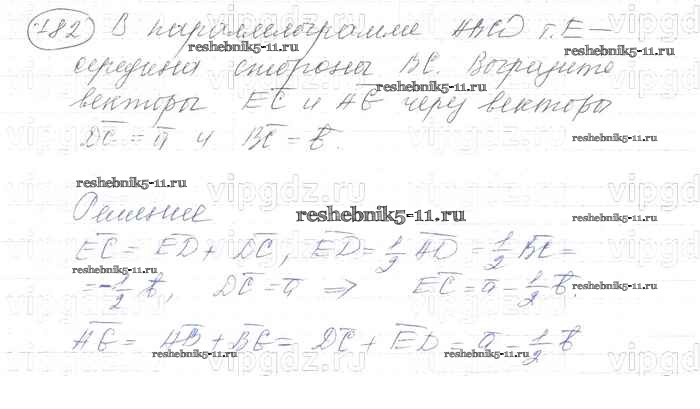 782 В параллелограмме ABCD т. E —
середина стороны BC. Выразите
векторы EC и AE через векторы
DC = a и BC = b.
Решение
EC = ED + DC, ED = 1/2 AD = 1/2 BC =
= -1/2 b, DC = a => EC = a - 1/2 b.
AE = AB + BE = DC + ED = a - 1/2 b
reshebnik5-11.ru
reshebnik5-11.ru
reshebnik5-11.ru
reshebnik5-11.ru
reshebnik5-11.ru
reshebnik5-11.ru
reshebnik5-11.ru
reshebnik5-11.ru
reshebnik5-11.ru
reshebnik5-11.ru
reshebnik5-11.ru
vipgdz.ru